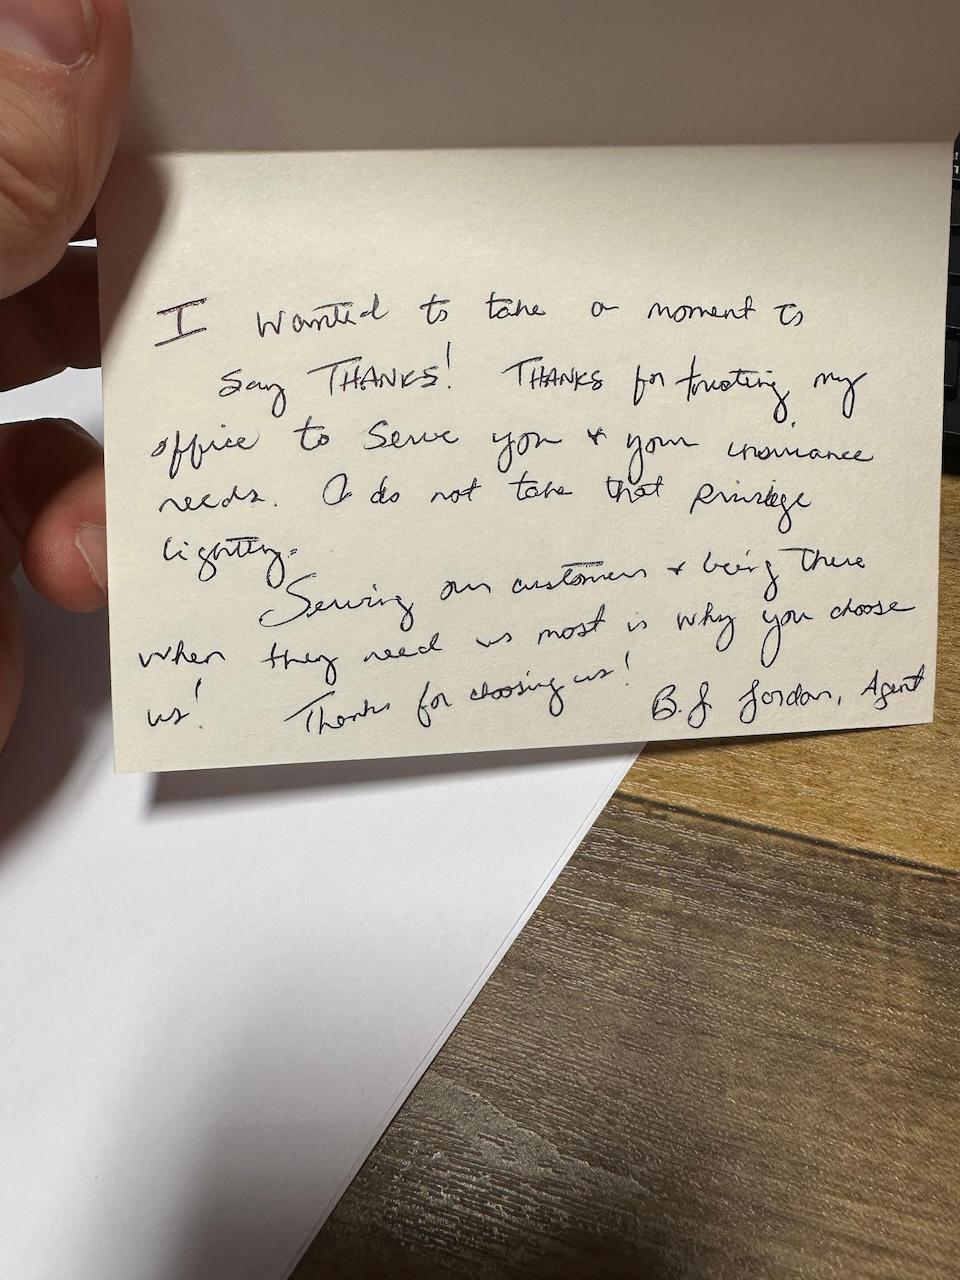 I wanted to take a moment to
say THANKS! THANKS for trusting my
office to serve you & your insurance
needs. I do not take that privilege
lightly.
Serving our customers & being there
when they need us most is why you choose
us! Thanks for choosing us! B.J. Jordan, Agent